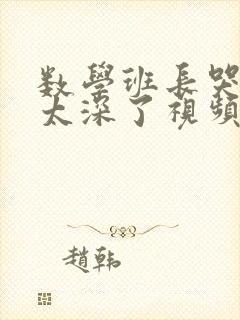 数學班長哭
太深了視頻
趙韩